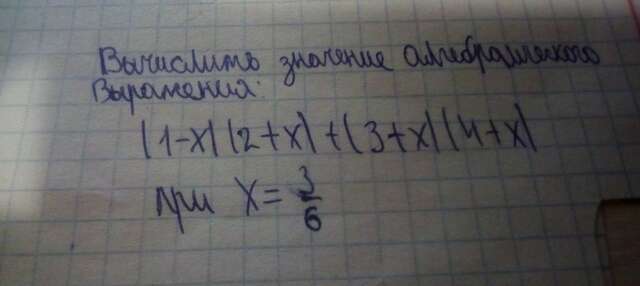 Вычислить значение алгебраического
выражения:
(1-x)(2+x)+(3+x)(4+x)
при x=3/6